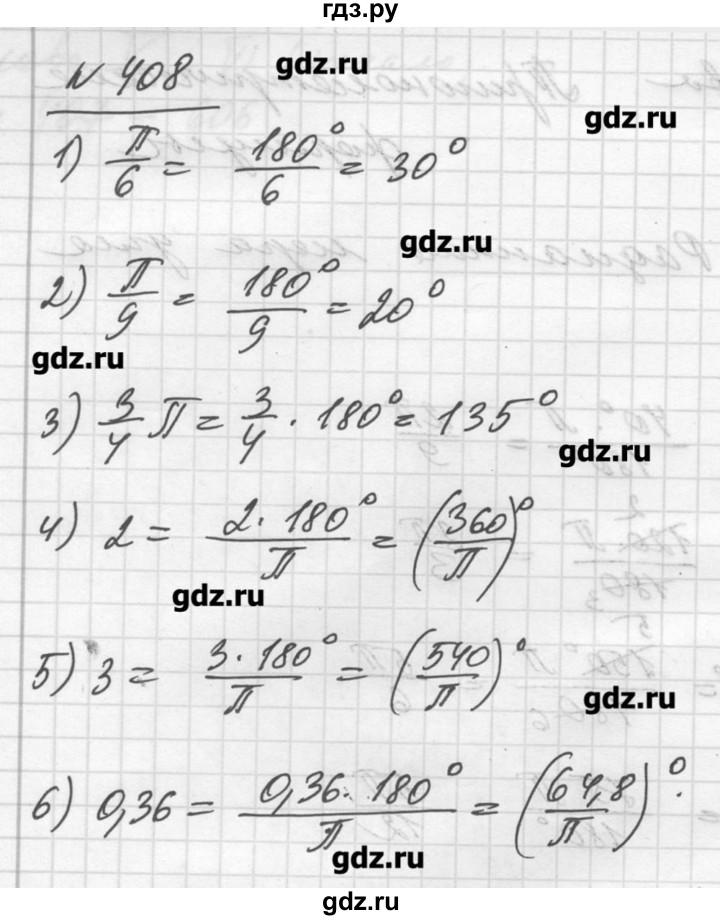 гдз.ру
№ 408
gdz.ru
gdz.ru
1) π/6 = 180°/6 = 30°
gdz.ru
2) π/9 = 180°/9 = 20°
gdz.ru
3) 3/4 π = 3/4 · 180° = 135°
gdz.ru
4) 2 = 2·180°/π = (360/π)°
gdz.ru
5) 3 = 3·180°/π = (540/π)°
gdz.ru
6) 0,36 = 0,36·180°/π = (64,8/π)°.
gdz.ru
gdz.ru